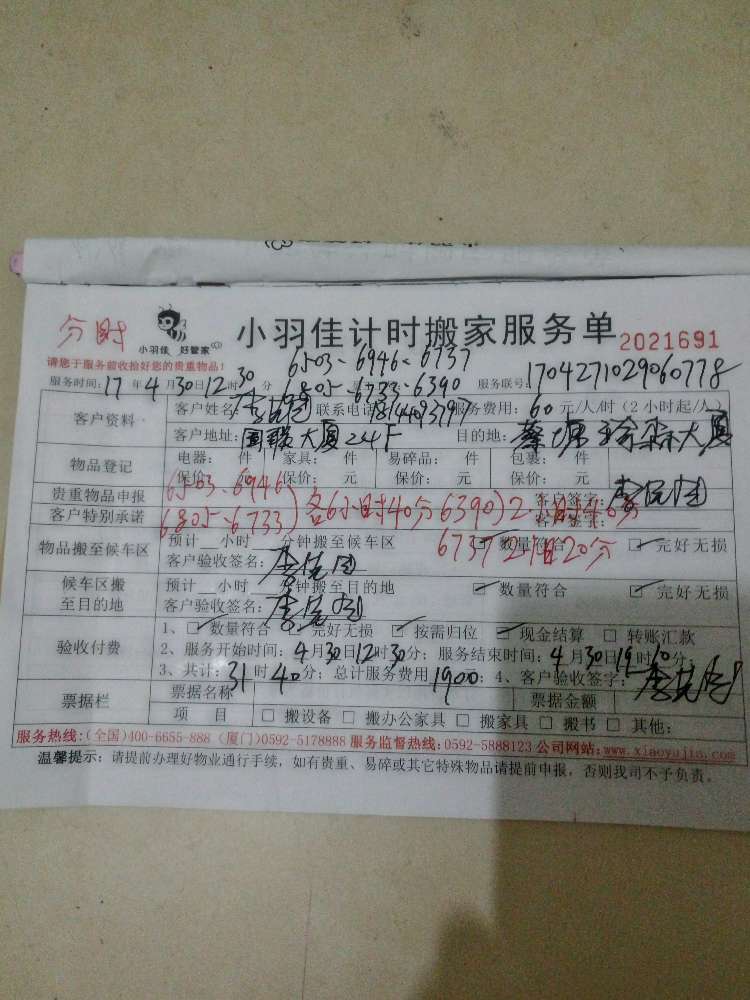 分时 小羽佳 好管家 小羽佳计时搬家服务单 2021691
请您于服务前收拾好您的贵重物品！ 6503、6946、6737
6805、6733、6390
服务时间：17年4月30日12时30分 服务联号：1704271029060778
客户资料 客户姓名 联系电话 服务费用：60元/人/时（2小时起/人）
客户地址：国联大厦24F 目的地：蔡塘 大厦
物品登记 电器： 件 家具： 件 易碎品： 件 包裹： 件
保价： 元 保价： 元 保价： 元 保价： 元
贵重物品申报 6503、6946 客户签字：
客户特别承诺 6805、6733）各6小时40分 6390）2小时40分 客户签字：
6737 2时20分
物品搬至候车区 预计 小时 分钟搬至候车区 数量符合 完好无损
客户验收签名：
候车区搬至目的地 预计 小时 分钟搬至目的地 数量符合 完好无损
客户验收签名：
验收付费 1、数量符合 完好无损 按需归位 现金结算 转账汇款
2、服务开始时间：4月30日12时30分；服务结束时间：4月30日19时10分；
3、共计：31时40分；总计服务费用1900；4、客户验收签字：
票据栏 票据名称 票据金额
项 目 搬设备 搬办公家具 搬家具 搬书 其他：
服务热线：（全国）400-6655-888（厦门）0592-5178888 服务监督热线：0592-5888123 公司网站：www.xiaoyujia.com
温馨提示：请提前办理好物业通行手续，如有贵重、易碎或其它特殊物品请提前申报，否则我司不予负责。